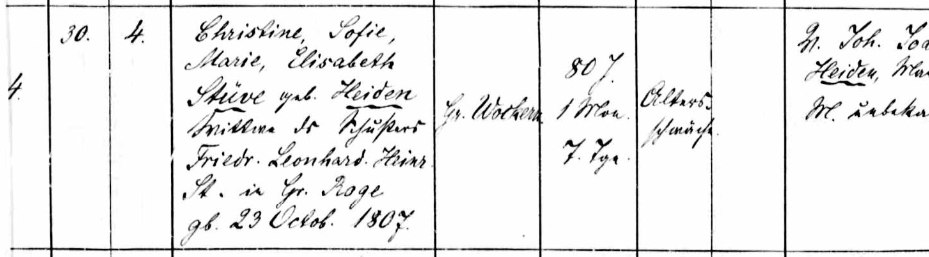 4. 30. 4.
Christine, Sofie,
Marie, Elisabeth
Stüve geb. Heiden
Wittwe ds Schusters
Friedr. Leonhard Heinr.
St. in Gr. Roge
gb. 23 Octob. 1807.
Gr. Wokern
80 J.
1 Mon.
7. Tge.
Alters-
schwäche.
V. Joh. Joa
Heiden, Ma
M. unbeka